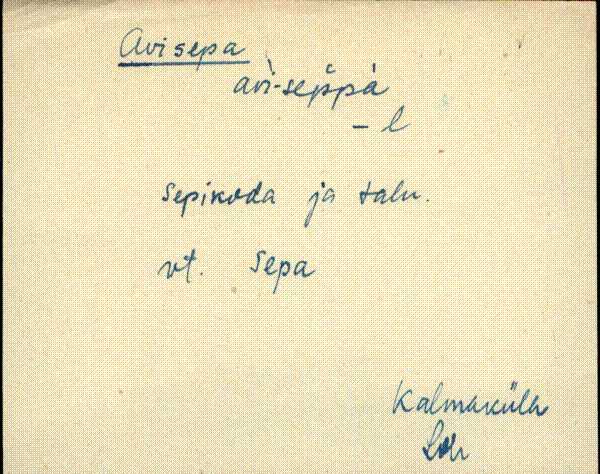 Avisepa
avi-seppä
– l
Sepikoda ja talu.
vt. Sepa
Kalmaküla